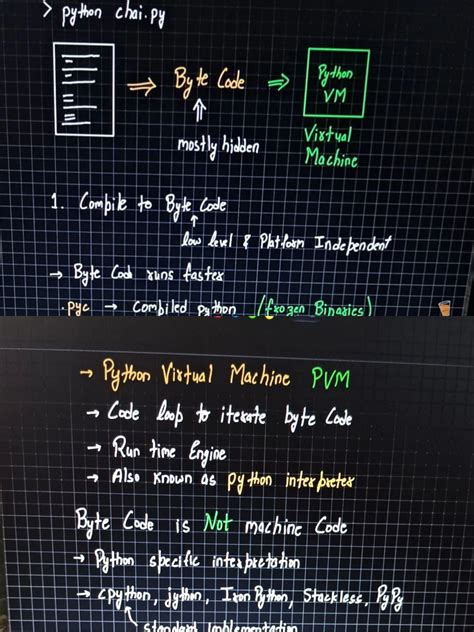 > python chai.py
⇒ Byte Code ⇒ Python VM
↑
mostly hidden
Virtual Machine
1. Compile to Byte Code
↑
low level & Platform Independent
→ Byte Code runs faster
.pyc → Compiled python (frozen Binaries)
→ Python Virtual Machine PVM
→ Code loop to iterate byte Code
→ Run time Engine
→ Also known as python interpreter
Byte Code is Not machine Code
→ Python specific interpretation
→ cpython, jython, Iron Python, Stackless, PyPy
standard Implementation